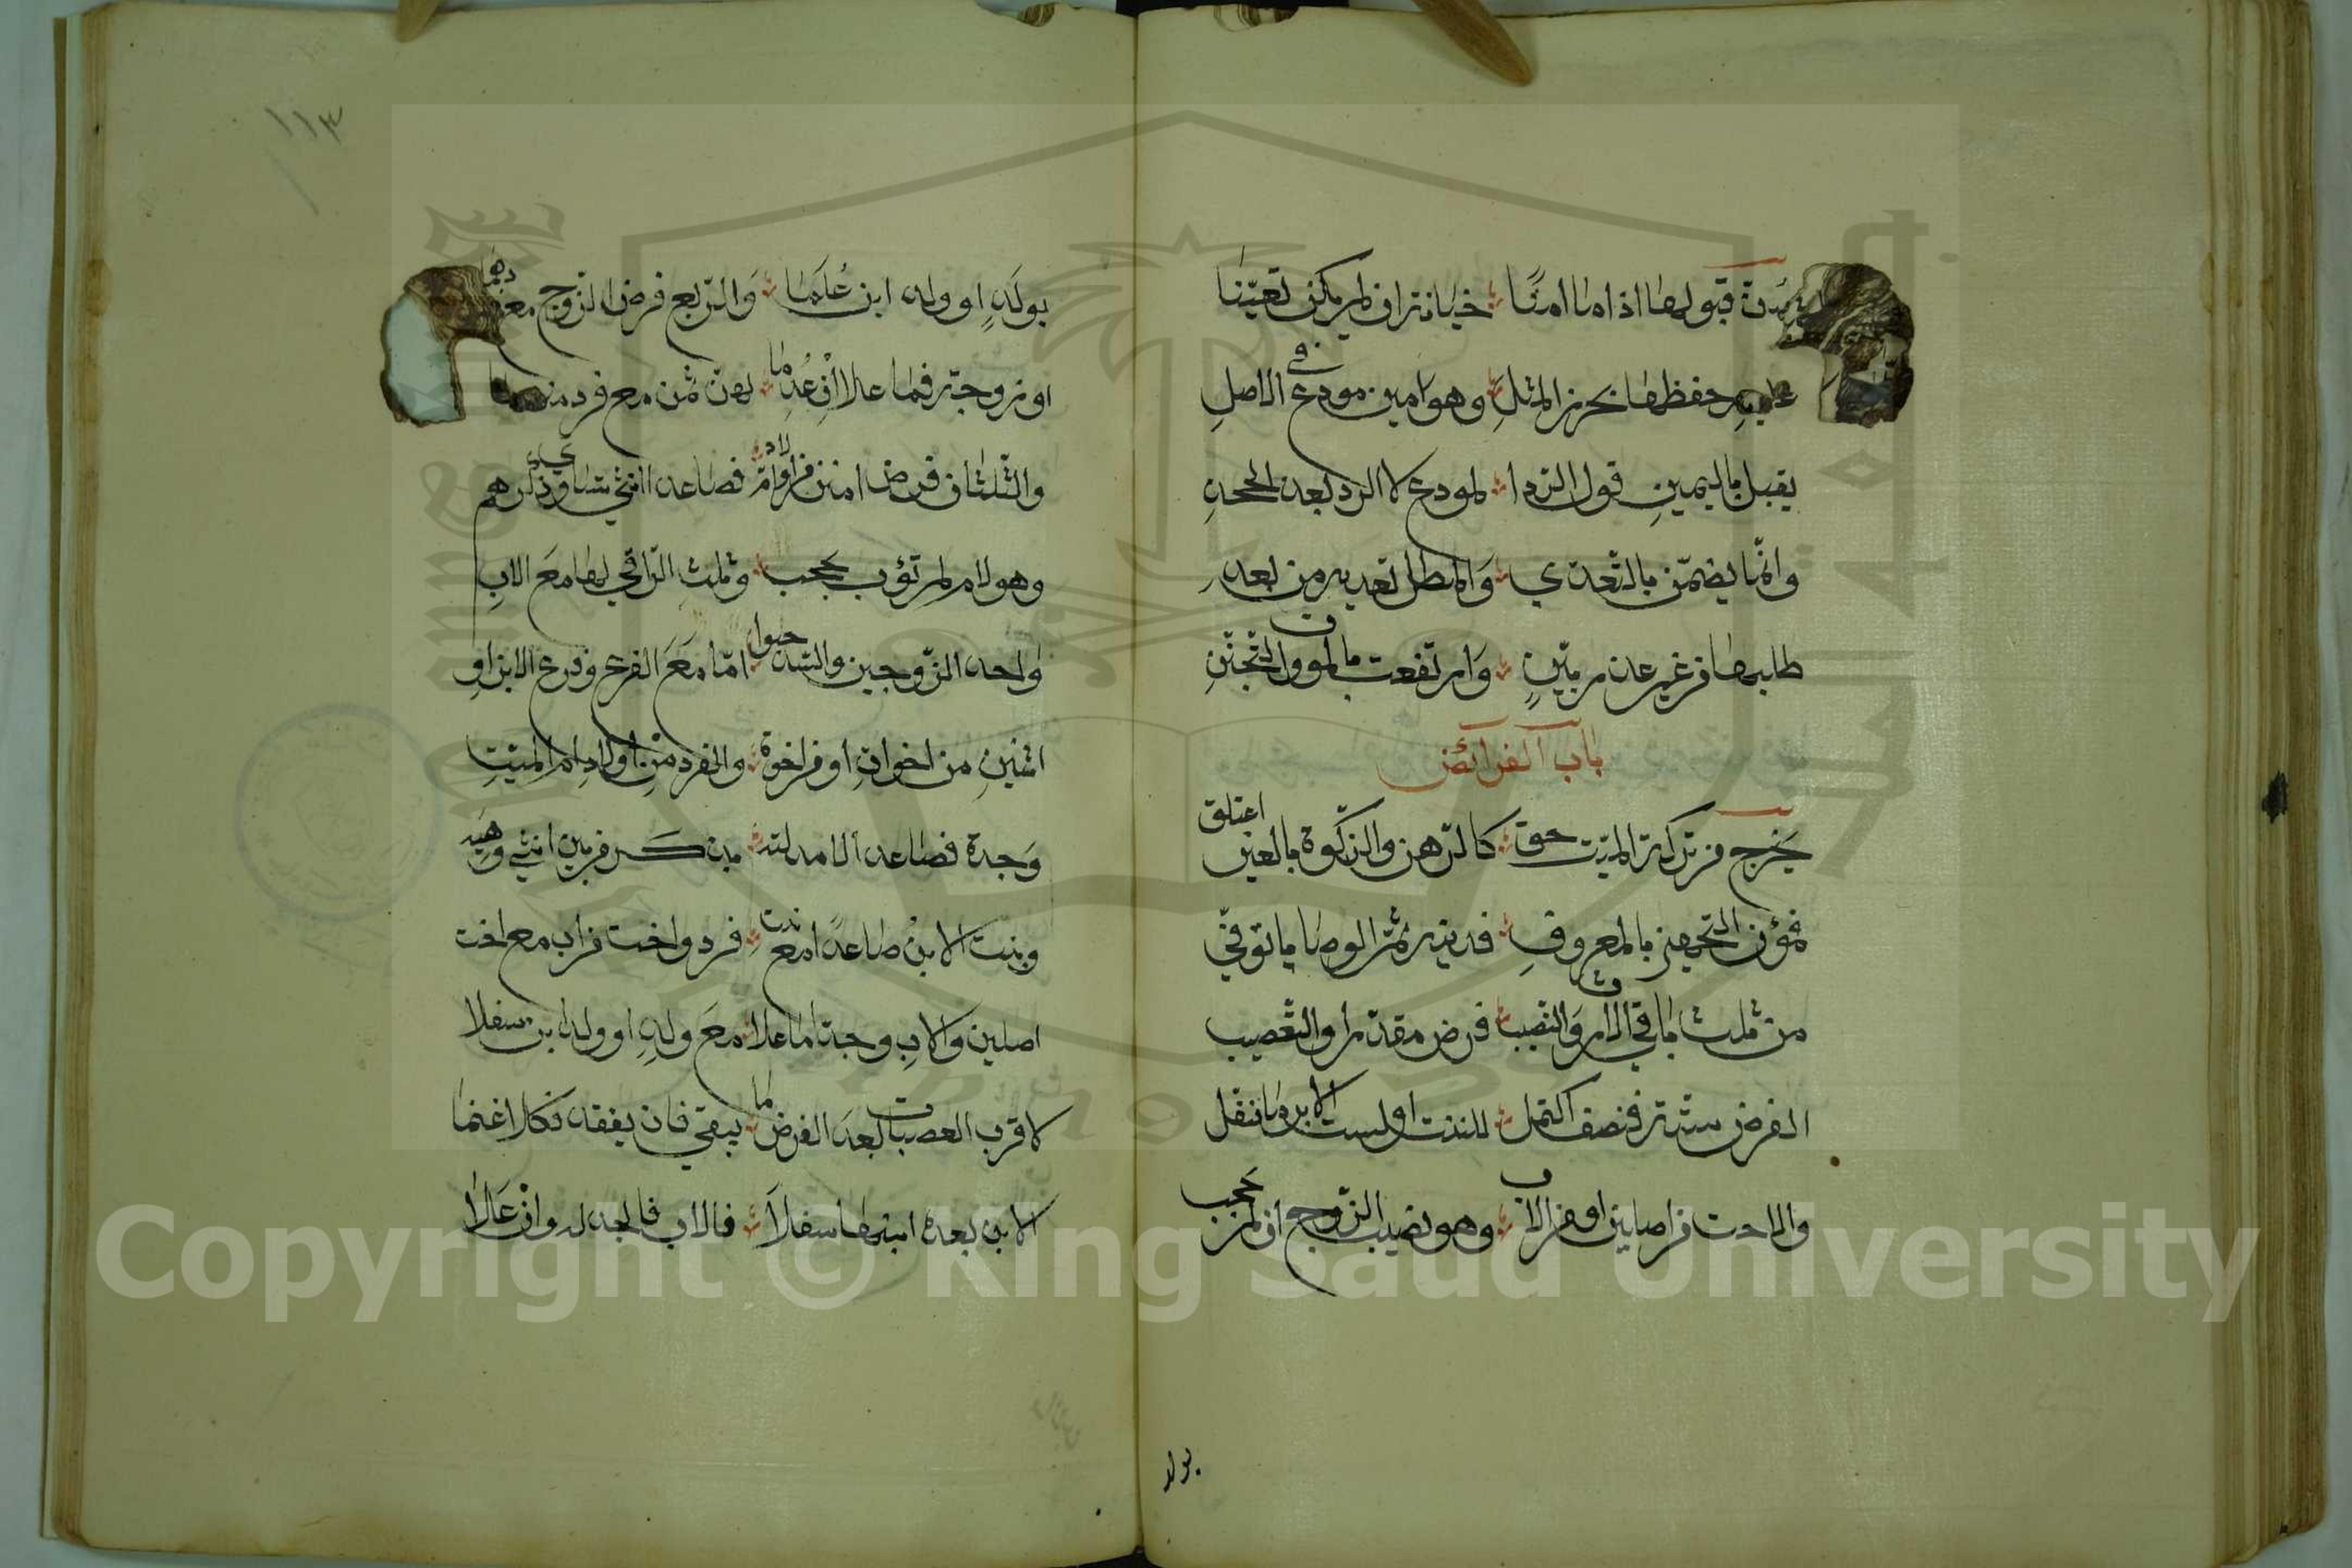 سن قبولها اذا ما امنا خيانة ان لم يكن تعينا
عليه حفظها بحرز المثل وهو امين مودع في الاصل
يقبل باليمين قول الرد لمودع لا الرد بعد الجحد
وانما يضمن بالتعدي والمطل بعد من بعد
طلبها من غير عذر بين وارتفعت بالموت والتجنن
باب الفرائض
يخرج من تركة الميت حق كالرهن والزكوة بالعين اعتلق
فمؤن التجهيز بالمعروف فدينه ثم الوصايا يوفي
من ثلث باقي الارث والنصيب فرض مقدر او التعصيب
الفرض ستة فنصف اكتمل للبنت او لبنت الابن ما سفل
والاخت من اصلين او من الاب وهو نصيب الزوج ان لم يحجب
بولد
بولد او ولد ابن علما والربع فرض الزوج مع
او زوجة فما علا ان عدما لهن ثمن مع فرد منهما
والثلثان فرض من فصاعدا انثى ذكرهم
وهو لام لم تؤب بحجب وثلث الباقي لها مع الاب
واحد الزوجين والسدس حبوا اما مع الفرع وفرع الابن او
اثنين من اخوات او من اخوة والفرد من اولاد ام الميت
وجدة فصاعدا لا مدلية بذكر من بين انثى وهيه
وبنت الابن صاعدا مع بنت فرد واخت من اب مع اخت
اصلين والاب وجدا ما علا مع ولد او ولد ابن سفلا
لاقرب العصبات بعد الفرض ما يبقى فان يفقد فكلا غنما
الابن بعده ابنه ما سفلا فالاب فالجد له وان علا
١١٣
Copyright © King Saud University